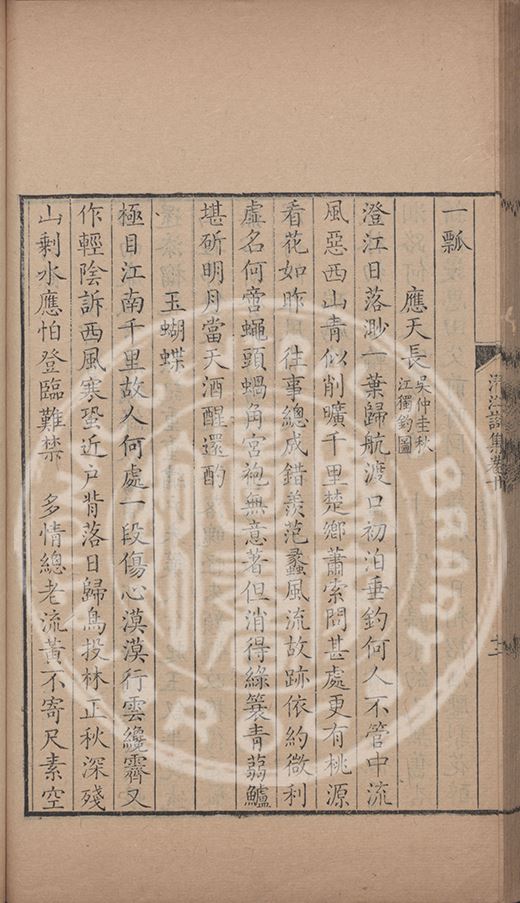 一瓢
應天長 吳仲圭秋江獨釣圖
澄江日落渺一葉歸航渡口初泊垂釣何人不管中流
風惡西山青似削曠千里楚鄉蕭索問甚處更有桃源
看花如昨 往事總成錯羨范蠡風流故跡依約微利
虛名何啻蠅頭蝸角宮袍無意著但消得綠蓑青蒻鱸
堪斫明月當天酒醒還酌
玉蝴蝶
極目江南千里故人何處一段傷心漠漠行雲纔霽又
作輕陰訴西風寒蛩近戶背落日歸鳥投林正秋深殘
山剩水應怕登臨難禁 多情總老流黃不寄尺素空